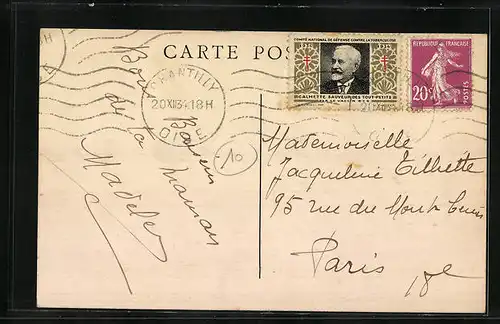 CARTE POS
COMITÉ NATIONAL DE DÉFENSE CONTRE LA TUBERCULOSE
CALMETTE SAUVEUR DES TOUT PETITS
PAR LE VACCIN BCG
RÉPUBLIQUE FRANÇAISE
20c
POSTES
CHANTILLY
20 XII 34 18H
OISE
10
Bons Baisers
de ta maman
Madele
Mademoiselle
Jacqueline Tilhette
95 rue du Mont Cenis
Paris 18e